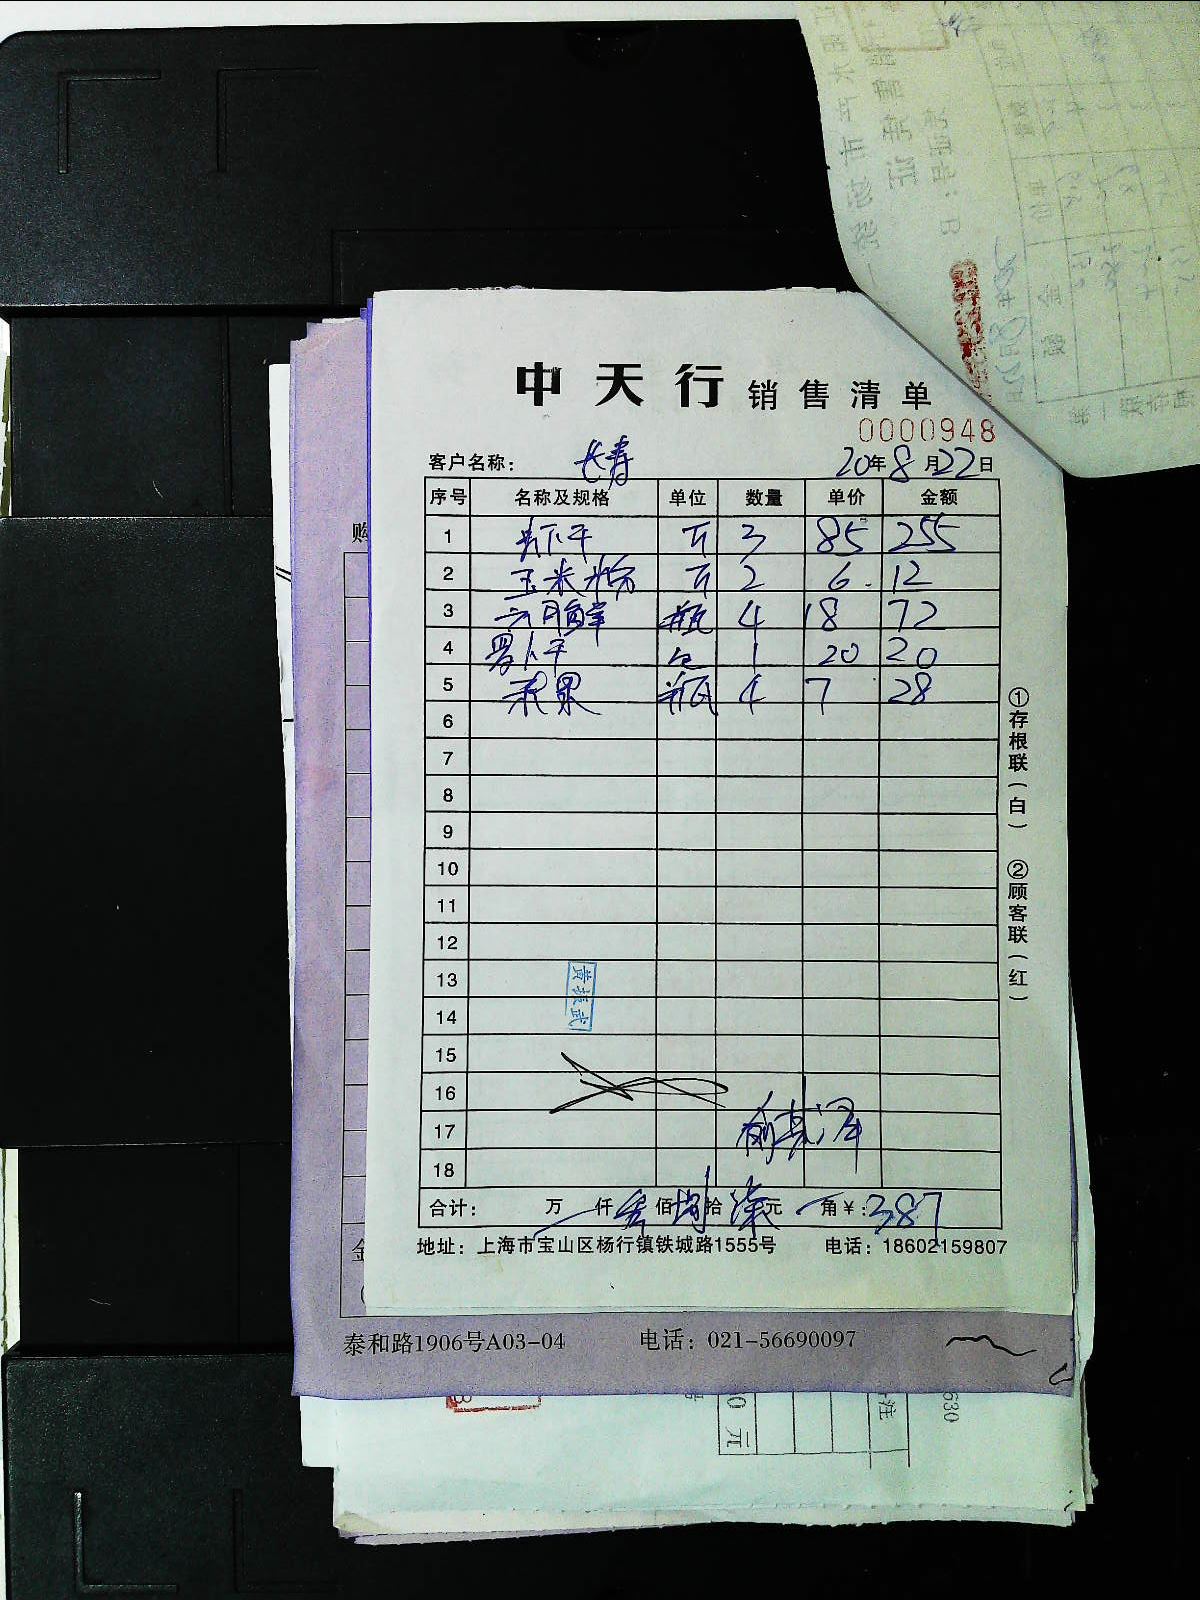 中天行 销售清单
0000948
客户名称： 长寿 20年8月22日
序号 名称及规格 单位 数量 单价 金额
1 斤 3 85 255
2 玉米粉 斤 2 6 12
3 六月鲜 瓶 4 18 72
4 包 1 20 20
5 苹果 瓶 4 7 28
6
7
8
9
10
11
12
13
14
15
16
17
18
黄振武
合计： 万 仟 叁 佰 捌 拾 柒 元 角￥：387
地址：上海市宝山区杨行镇铁城路1555号 电话：18602159807
①存根联（白） ②顾客联（红）
泰和路1906号A03-04 电话：021-56690097